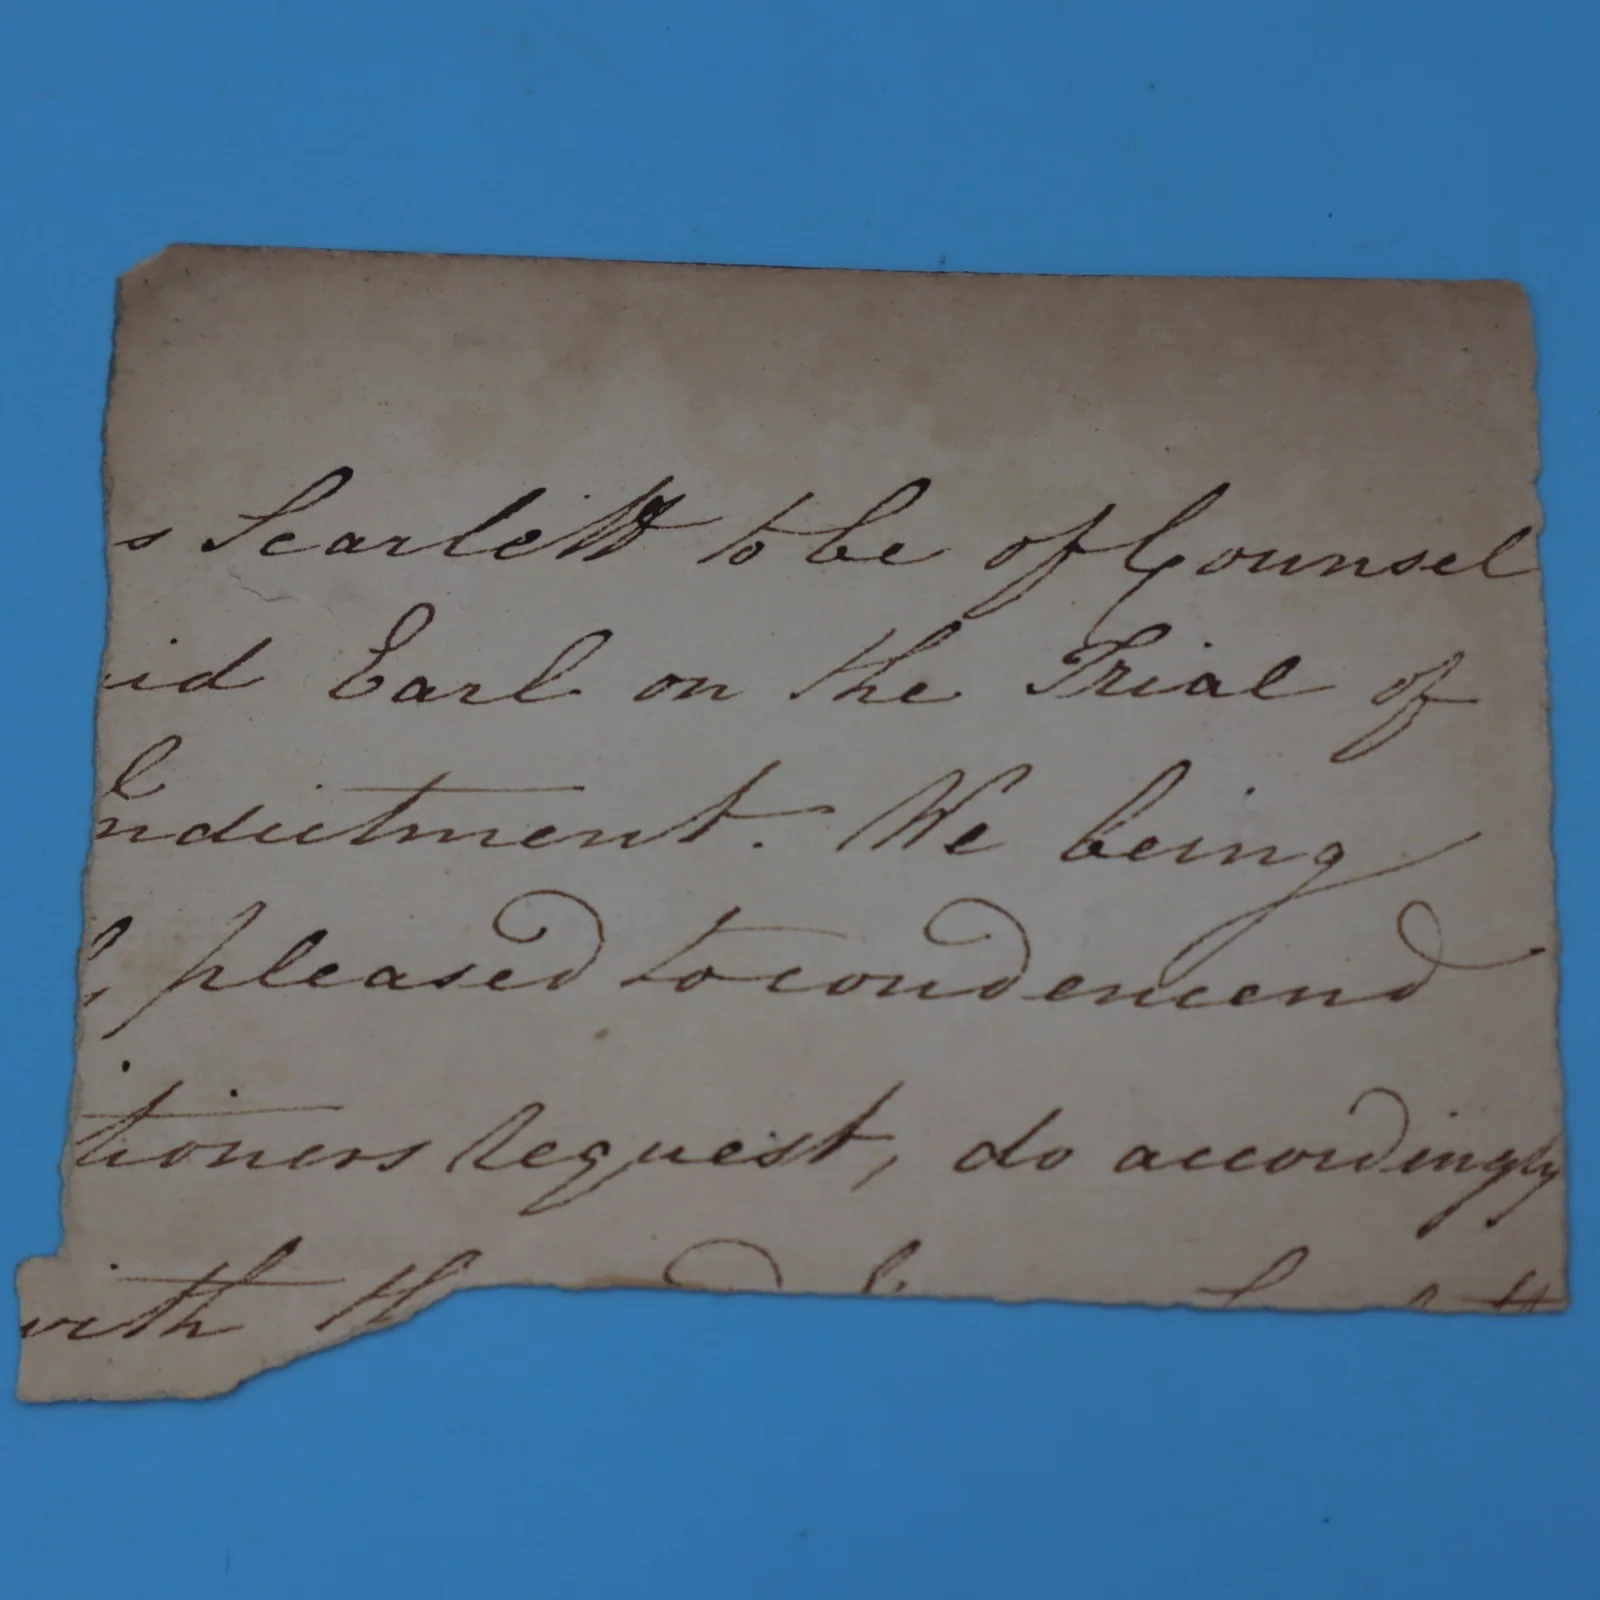 s Scarlett to be of Counsel
id Earl on the Trial of
ndictment. We being
pleased to condencend
tioners request, do accordingly
with th